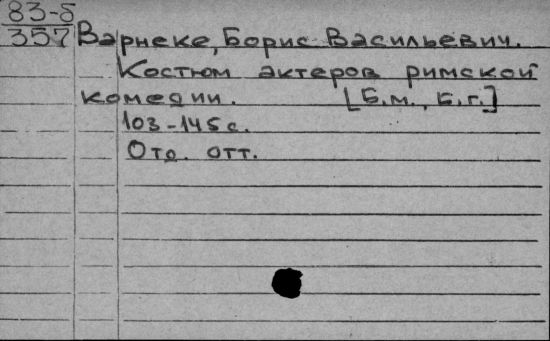 83-б
357 Варнеке, Борис Васильевич.
Костюм актеров римской
комедии. [Б.м., Б.г.]
103-145 с.
Отд. отт.